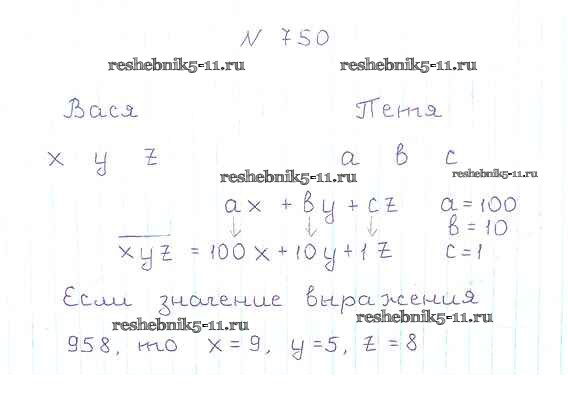 N 750
reshebnik5-11.ru reshebnik5-11.ru
Вася Петя
x y z a в c
reshebnik5-11.ru reshebnik5-11.ru
ax + вy + cz a = 100
в = 10
xyz = 100x + 10y + 1z c = 1
Если значение выражения
reshebnik5-11.ru reshebnik5-11.ru
958, то x = 9, y = 5, z = 8